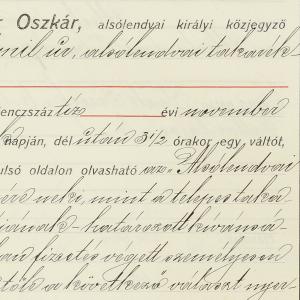 r Oszkár, alsólendvai királyi közjegyző
mil úr, alsólendvai takarék-
lenczszáz tíz évi november
napján, dél után 3 1/2 órakor egy váltót,
ulsó oldalon olvasható az "Alsólendvai
neki, mint a telepes taka-
-határozott kívánsá-
fizetés végett személyesen
a következő választ nyer-